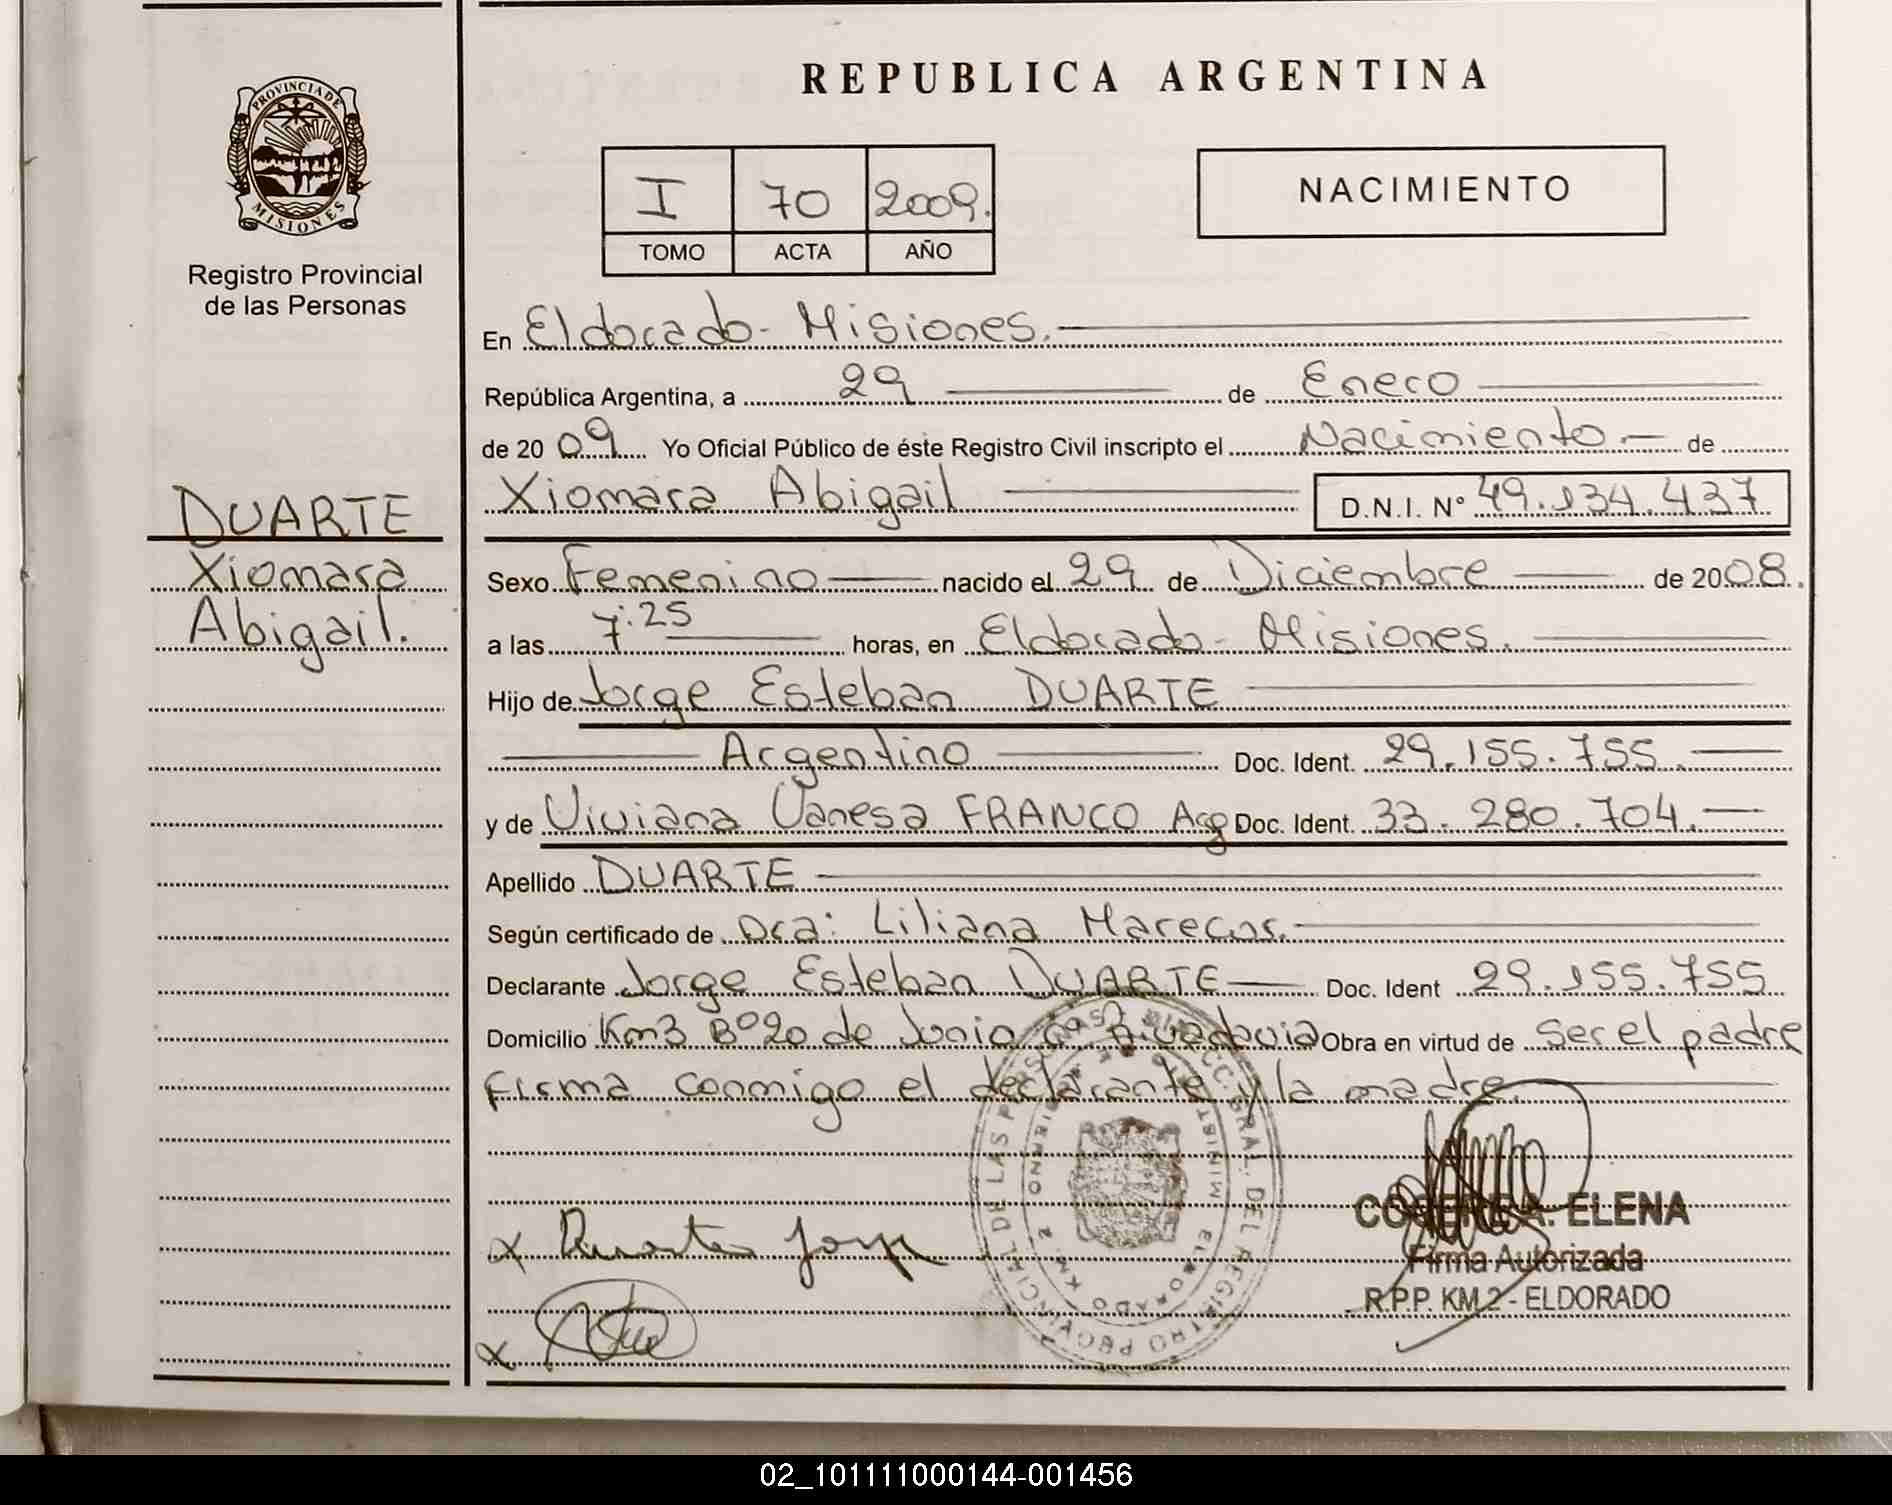 PROVINCIA DE
MISIONES
Registro Provincial
de las Personas
DUARTE
Xiomara
Abigail.
REPUBLICA ARGENTINA
I 70 2009.
TOMO ACTA AÑO
NACIMIENTO
En Eldorado - Misiones.
República Argentina, a 29 de Enero
de 20 09 Yo Oficial Público de éste Registro Civil inscripto el Nacimiento de
Xiomara Abigail D.N.I. Nº 49.134.437
Sexo Femenino nacido el 29 de Diciembre de 2008.
a las 7:25 horas, en Eldorado - Misiones.
Hijo de Jorge Esteban DUARTE
Argentino Doc. Ident. 29.155.755.
y de Viviana Vanesa FRANCO Arg Doc. Ident. 33.280.704.
Apellido DUARTE
Según certificado de Dra: Liliana Marecos.
Declarante Jorge Esteban DUARTE Doc. Ident 29.155.755
Domicilio Km3 Bº 20 de Junio Rivadavia Obra en virtud de Ser el padre
firma conmigo el declarante y la madre.
x Duarte Jorge
x
ELENA
Firma Autorizada
R.P.P. KM 2 - ELDORADO
02_101111000144-001456